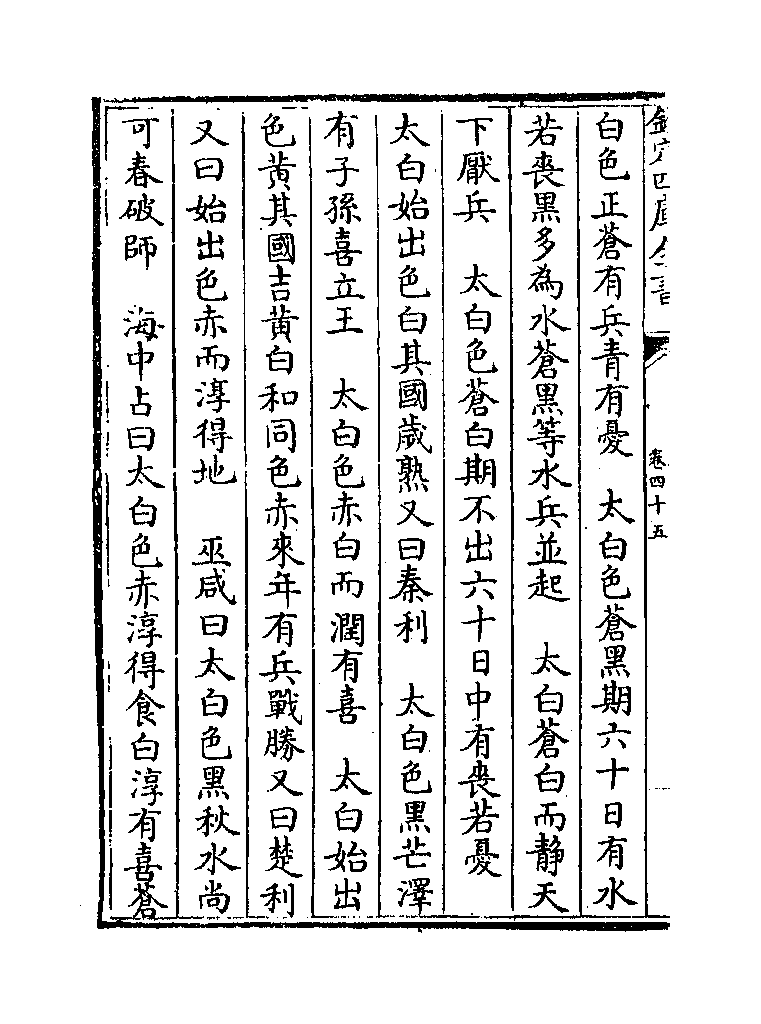 欽定四庫全書
卷四十五
白色正蒼有兵青有憂　太白色蒼黑期六十日有水
若喪黑多為水蒼黑等水兵並起　太白蒼白而静天
下厭兵　太白色蒼白期不出六十日中有喪若憂
太白始出色白其國歲熟又曰秦利　太白色黑芒澤
有子孫喜立王　太白色赤白而潤有喜　太白始出
色黄其國吉黄白和同色赤來年有兵戰勝又曰楚利
又曰始出色赤而淳得地　巫咸曰太白色黑秋水尚
可春破師　海中占曰太白色赤淳得食白淳有喜蒼